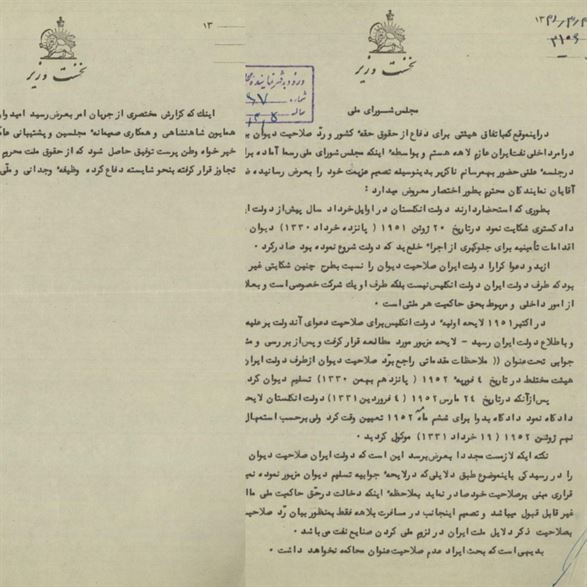 نخست وزیر
مجلس شورای ملی
دراینموقع که باتفاق هیئتی برای دفاع از حقوق حقه کشور و ردّ صلاحیت دیوان
درامرداخلی نفت ایران عازم لاهه هستم و بواسطه اینکه مجلس شورای ملی رسما آماده برا
درجلسه علنی حضور بهمرسانم ناگزیر بدینوسیله تصمیم عزیمت خود را بعرض رسانیده
آقایان نمایندگان محترم بطور اختصار معروض میدارد :
بطوری که استحضار دارند دولت انگلستان در اوایل خرداد سال پیش از دولت
دادگستری شکایت نمود درتاریخ ۲۰ ژوئن ۱۹۵۱ ( پانزده خرداد ۱۳۳۰) دیوان
اقدامات تأمینیه برای جلوگیری از اجراء خلع ید که دولت شروع نموده بود صادرکرد .
ازبدو دعوا کرارا دولت ایران صلاحیت دیوان را نسبت بطرح چنین شکایتی غیر
بود که طرف دولت ایران دولت انگلیس نیست بلکه طرف او یک شرکت خصوصی است و بعلا
از امور داخلی و مربوط بحق حاکمیت هر ملتی است .
در اکتبر ۱۹۵۱ لایحه اولیه دولت انگلیس برای صلاحیت دعوای آندولت برعلیه
و باطلاع دولت ایران رسید - لایحه مزبور مورد مطالعه قرار گرفت و پس از بررسی و
جوابی تحت عنوان (( ملاحظات مقدماتی راجع بردّ صلاحیت دیوان ازطرف دولت ایران
هیئت مختلط در تاریخ ۴ فوریه ۱۹۵۲ ( پانزدهم بهمن ۱۳۳۰) تسلیم دیوان کرد
پس ازآنکه درتاریخ ۲۴ مارس ۱۹۵۲ ( ۴ فروردین ۱۳۳۱) دولت انگلستان لایحه
دادگاه نمود دادگاه بدوا برای ششم ماه ۱۹۵۲ تعیین وقت کرد ولی برحسب استمهال
نهم ژوئن ۱۹۵۲ ( ۱۹ خرداد ۱۳۳۱) موکول گردید .
نکته ایکه لازمست مجددا بعرض برسد این است که دولت ایران صلاحیت دیوان
را در رسیدگی باینموضوع طبق دلایلی که درلایحه جوابیه تسلیم دیوان مزبور نموده
قراری مبنی برصلاحیت خود صادر نماید بملاحظه اینکه دخالت درحق حاکمیت ملی
غیر قابل قبول میباشد و تصمیم اینجانب در مسافرت بلاهه فقط بمنظور بیان ردّ صلاحیت
بصلاحیت ذکر دلایل ملت ایران در لزوم ملی کردن صنایع نفت می باشد .
بدیهی است که بحث ایراد عدم صلاحیت عنوان محاکمه نخواهد داشت .
۱۳
نخست وزیر
اینک که گزارش مختصری از جریان امر بعرض رسید امیدوار
همایون شاهنشاهی و همکاری صمیمانه مجلسین و پشتیبانی
خیرخواه وطن پرست توفیق حاصل شود که از حقوق ملت محروم
تجاوز قرار گرفته بنحو شایسته دفاع کرده وظیفه وجدانی و ملی